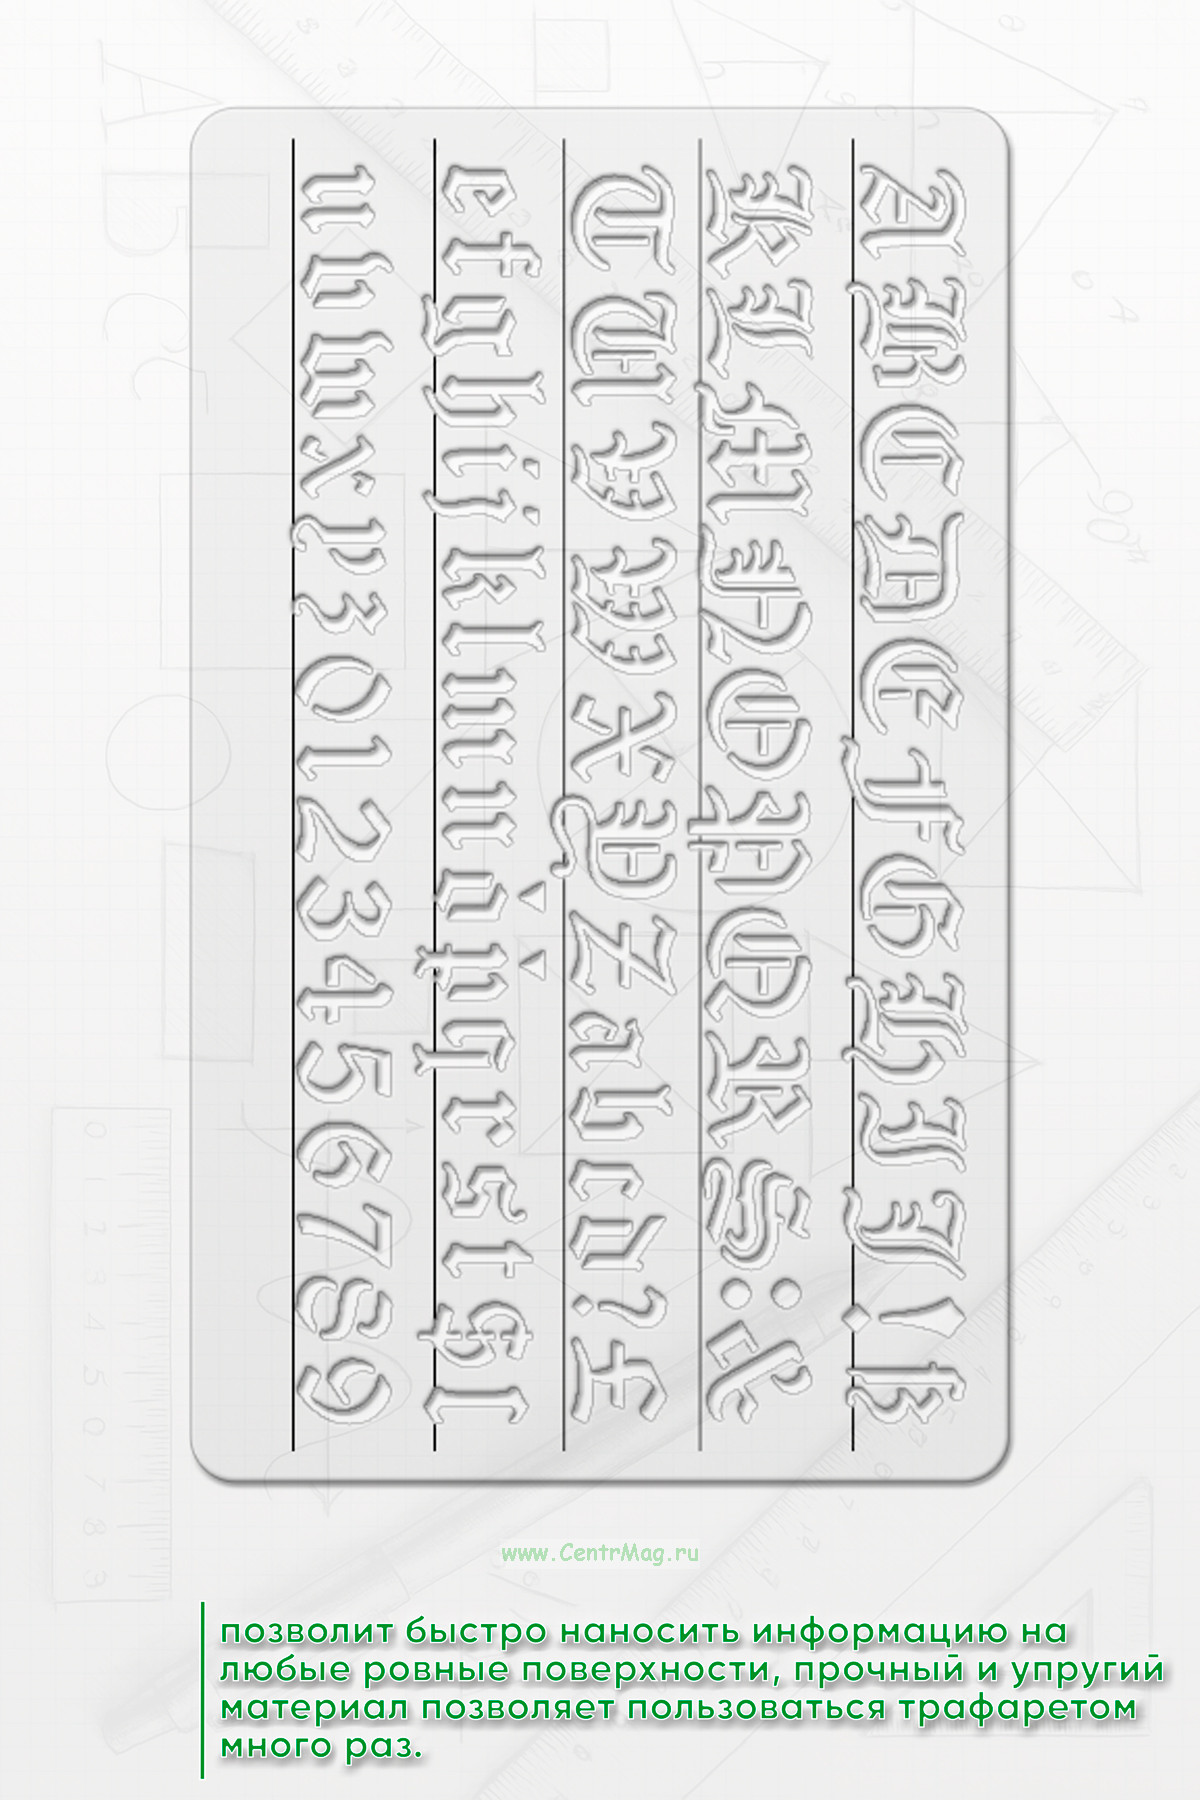 A B C D E F G H I J ! ß
K L M N O P Q R S : &
T U V W X Y Z a b c d ? £
e f g h i j k l m n o p q r s t $
u v w x y z 0 1 2 3 4 5 6 7 8 9
www.CentrMag.ru
позволит быстро наносить информацию на
любые ровные поверхности, прочный и упругий
материал позволяет пользоваться трафаретом
много раз.